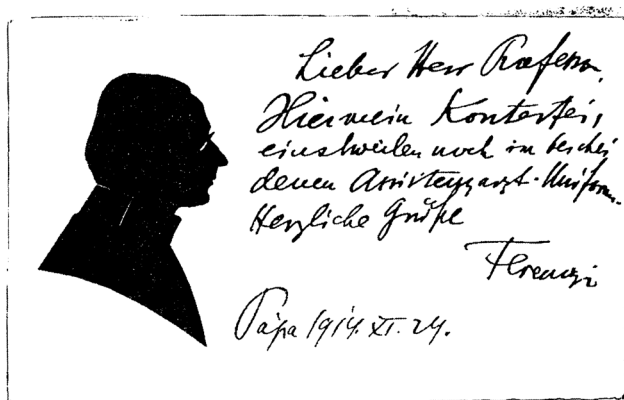 Lieber Herr Professor,
Hier mein Konterfei,
einstweilen noch in beschei
denen Assistenzarzt-Uniform.
Herzliche Grüße
Ferenczi
Pápa 1914. XI. 24.